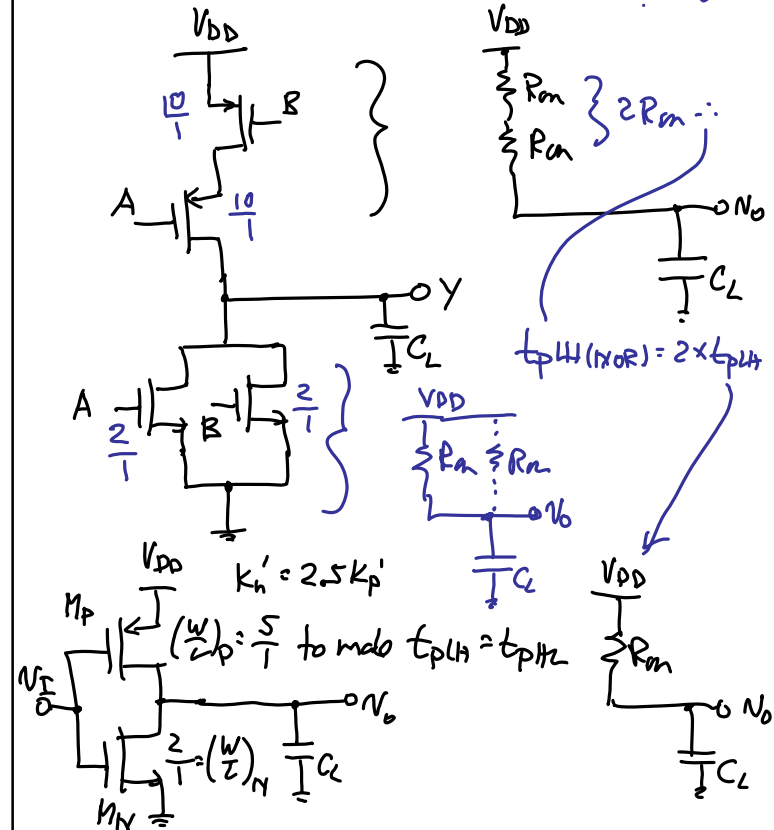 VDD
10/1
B
A
10/1
Y
CL
A
2/1
B
2/1
VDD
Ron
Ron
2Ron ∴
No
CL
tpLH(NOR) = 2×tpLH
VDD
Ron
Ron
Vo
CL
VDD
Kn' = 2.5Kp'
MP
(W/L)P = 5/1 to make tpLH = tpHL
VI
Vo
2/1 = (W/L)N
CL
MN
VDD
Ron
No
CL